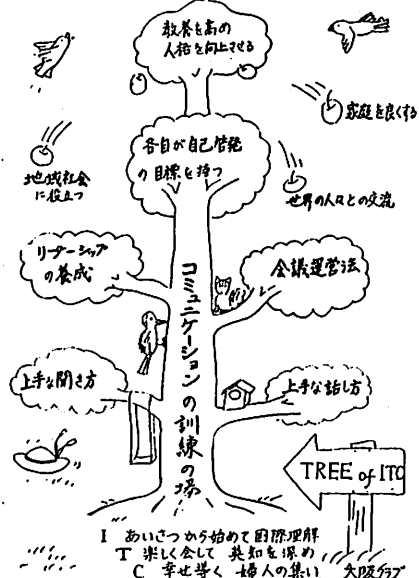 教養を高め
人格を向上させる
各自が自己啓発
の目標を持つ
家庭を良くする
地域社会
に役立つ
世界の人々との交流
リーダーシップ
の養成
会議運営法
コミュニケーションの訓練の場
上手な聞き方
上手な話し方
TREE of ITC
I あいさつから始めて国際理解
T 楽しく会して 英知を深め
C 幸せ導く 婦人の集い
大阪クラブ